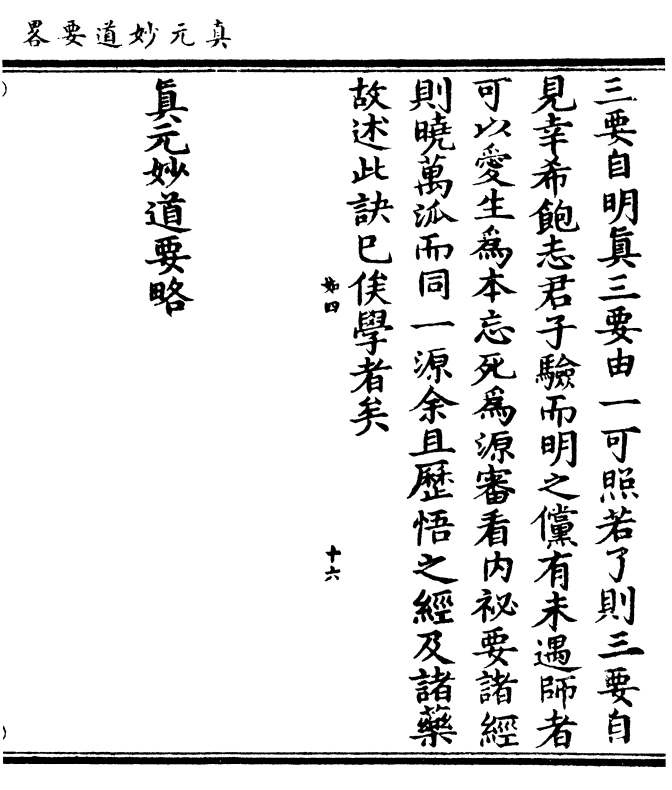 真元妙道要畧
三要自明眞三要由一可照若了則三要自
見幸希飽志君子驗而明之儻有未遇師者
可以愛生爲本忘死爲源審看内祕要諸經
則曉萬泒而同一源余且歷悟之經及諸藥
故述此訣已俟學者矣
如四
十六
眞元妙道要略